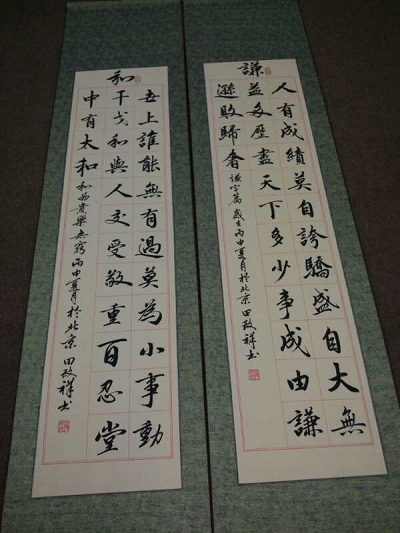 謙
人有成績莫自誇驕盛自大無
益多歷盡天下多少事成由謙
遜敗歸奢
謙字篇 歲在丙申夏月於北京 田政祥书
和
世上誰能無有過莫為小事動
干戈和與人交受敬重百忍堂
中有太和
和為貴樂無窮 丙申夏月於北京 田政祥书